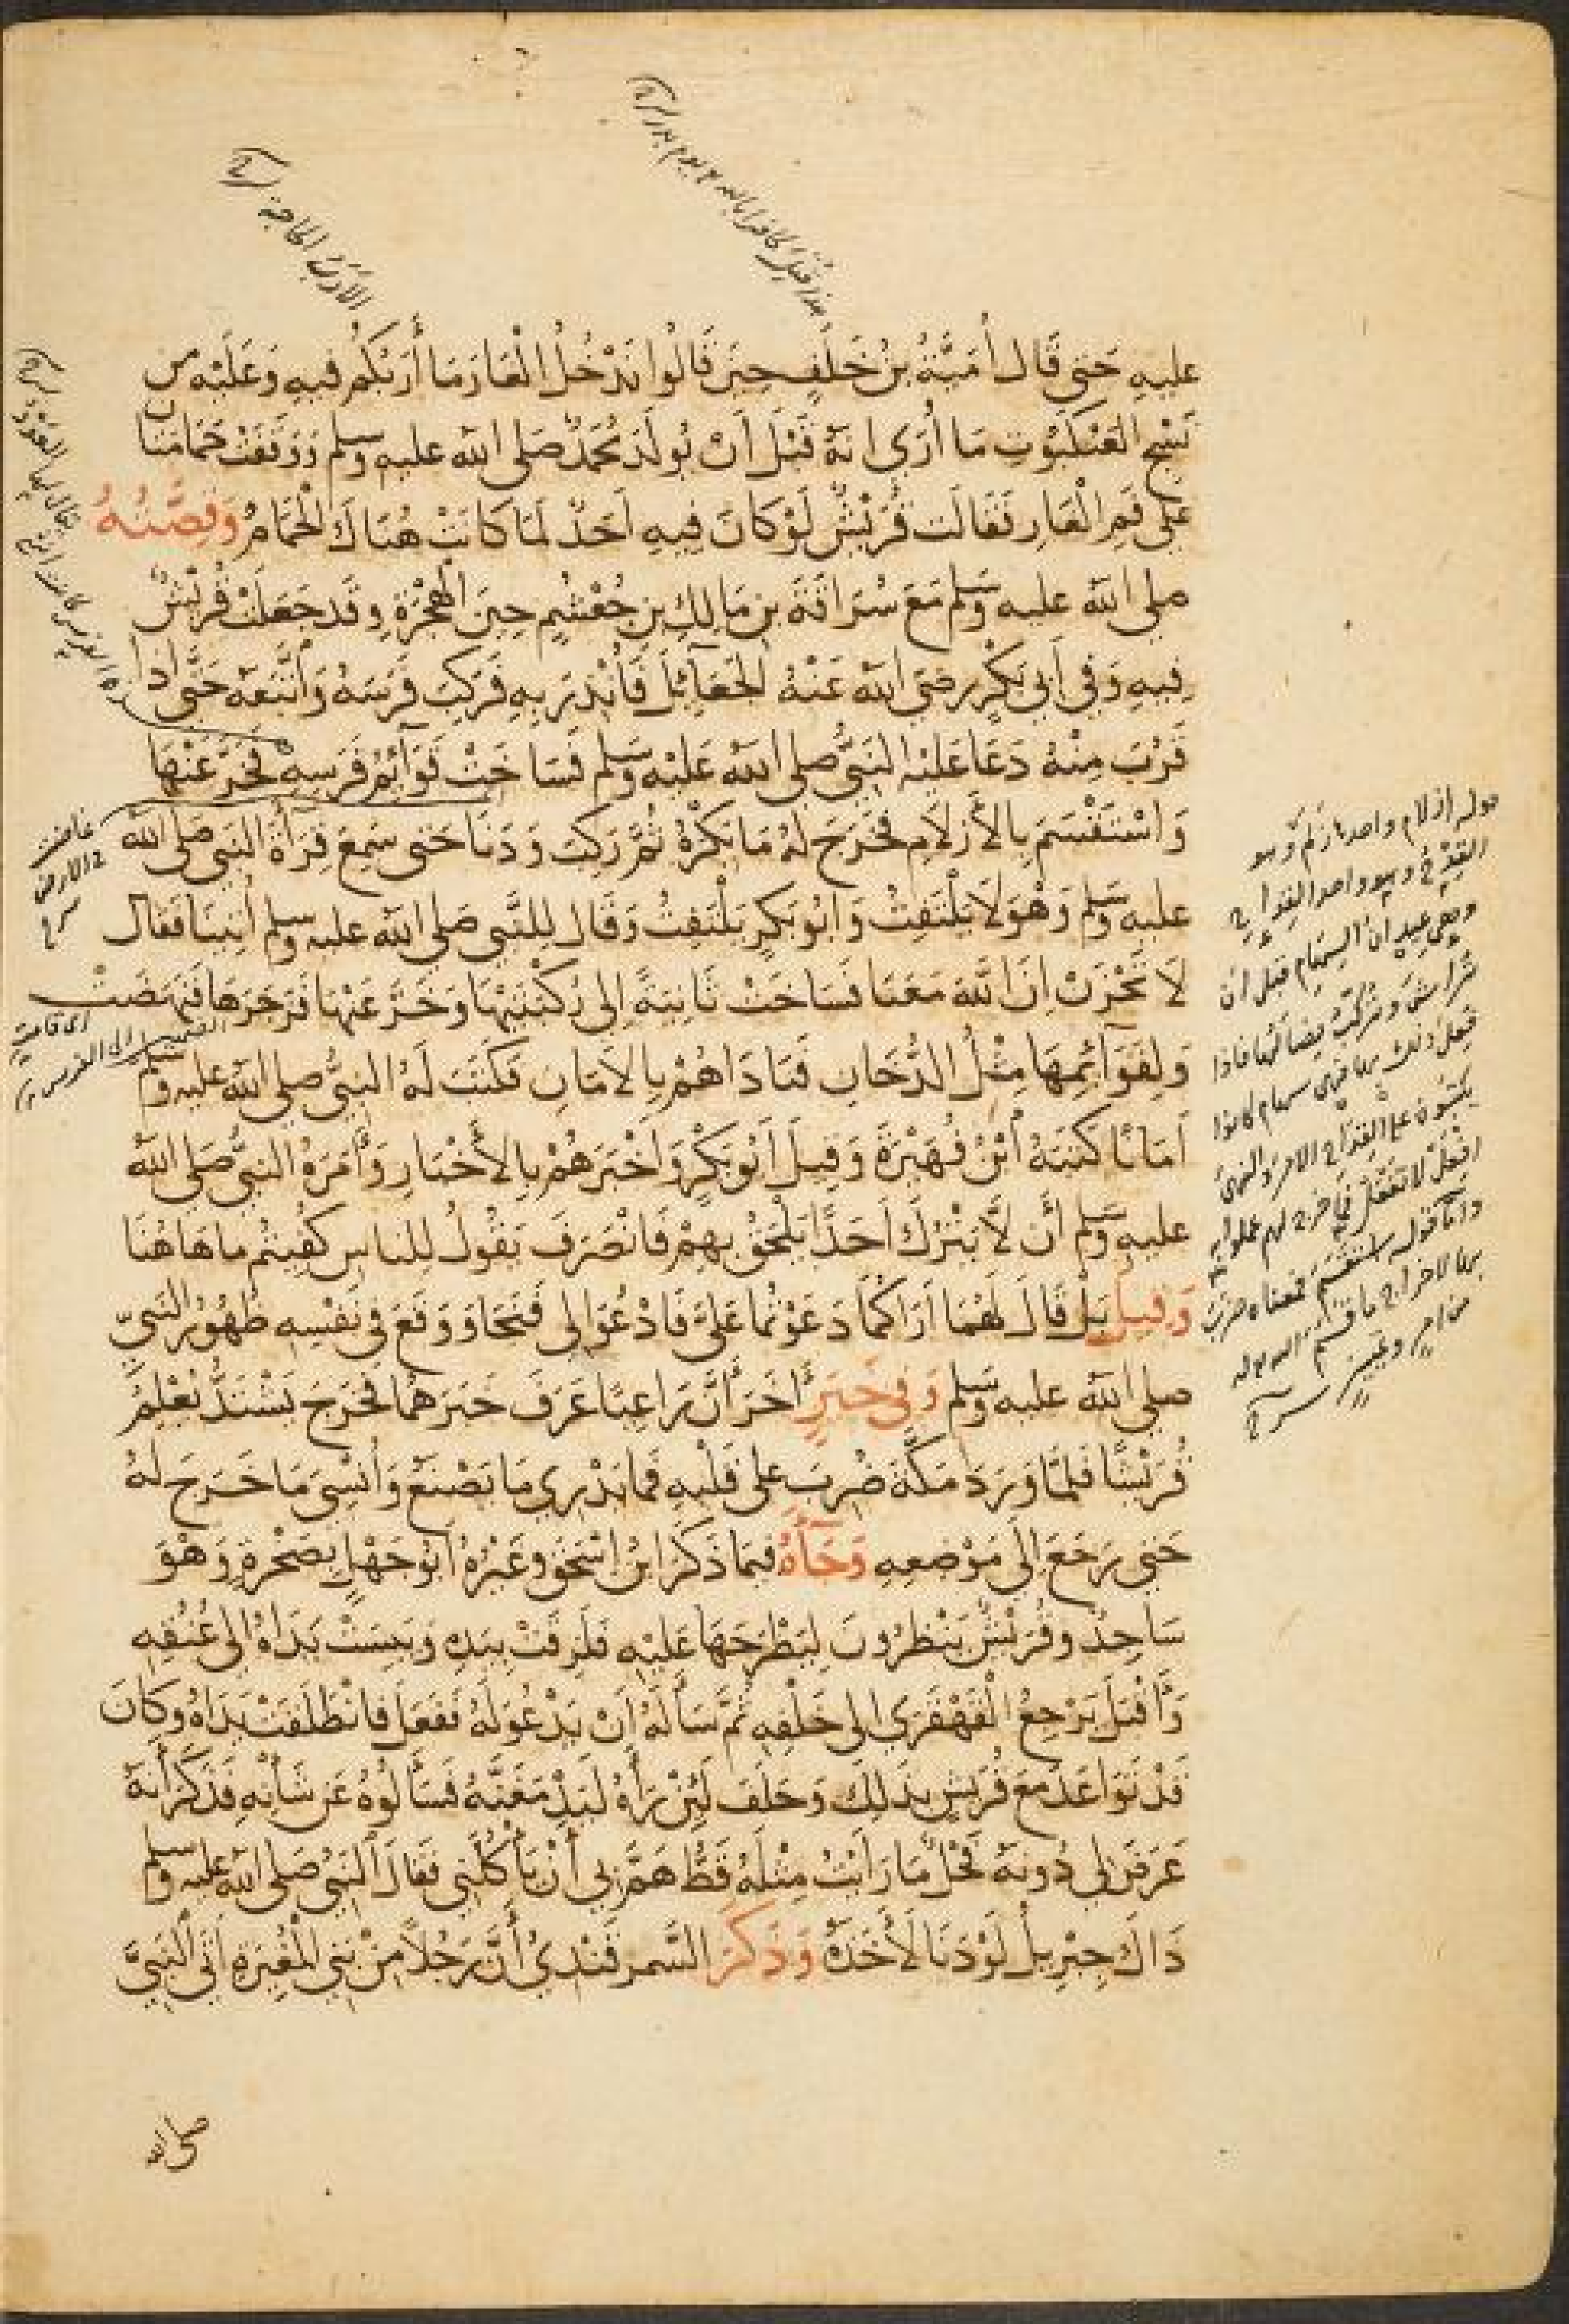 هذا قتل كافرا بالله يوم بدر
الأرب الحاجة
عليه حتى قال أمية بن خلف حين قالوا ندخل الغار ما أربكم فيه وعليه من
نسج العنكبوت ما أرى انه قبل أن يولد محمد صلى الله عليه وسلم ووقفت حمامتا
على فم الغار فقالت قريش لو كان فيه احد لما كانت هناك الحمام وقصته
صلى الله عليه وسلم مع سراقة بن مالك بن جعشم حين الهجرة وقد جعلت قريش
فيه وفي أبي بكر رضي الله عنه الجعائل فأنذر به فركب فرسه وأتبعه حتى إذا
قرب منه دعا عليه النبي صلى الله عليه وسلم فساخت قوائم فرسه فخر عنها
واستقسم بالأزلام فخرج له ما يكره ثم ركب ودنا حتى سمع قرأة النبي صلى الله
عليه وسلم وهو لا يلتفت وابو بكر يلتفت وقال للنبي صلى الله عليه وسلم أتينا فقال
لا تحزن ان الله معنا فساخت ثانية إلى ركبتيها وخر عنها فزجرها فنهضت
ولقوائمها مثل الدخان فناداهم بالامان فكتب له النبي صلى الله عليه وسلم
أمانا كتبه أبن فهيرة وقيل أبو بكر وأخبرهم بالأخبار وأمره النبي صلى الله
عليه وسلم أن لا يترك أحدا يلحق بهم فانصرف يقول للناس كفيتم ما هاهنا
وقيل بل قال لهما أراكما دعوتما علي فادعوا لي فنجا ووقع في نفسه ظهور النبي
صلى الله عليه وسلم وفي خبر اخر أن راعيا عرف خبرهما فخرج يشتد يعلم
قريشا فلما ورد مكة ضرب على قلبه فما يدري ما يصنع وأنسي ما خرج له
حتى رجع إلى موضعه وجآه فيما ذكر ابن اسحق وغيره ابو جهل بصخرة وهو
ساجد وقريش ينظرون ليطرحها عليه فلزقت بيده ويبست يداه إلى عنقه
وأقبل يرجع القهقرى إلى خلفه ثم سأله أن يدعو له ففعل فانطلقت يداه وكان
قد تواعد مع قريش بذلك وحلف لئن رأه ليدمغنه فسألوه عن شأنه فذكر أنه
عرض لي دونه فحل ما رأيت مثله قط هم بي أن يأكلني فقال النبي صلى الله عليه وسلم
ذاك جبريل لو دنا لأخذه وذكر السمرقندي أن رجلا من بني المغيرة أتى النبي
غاصت
في الارض
اى قامت
قوله ازلام واحدها زلم وهو
القدح وهو واحد القداح
وهي عيدان السهام قبل ان
تراش وتركب نصالها فاذا
فعل ذلك بها فهي سهام كانوا
يكتبون على القداح الامر والنهي
افعل لا تفعل فما خرج لهم عملوا به
واما قوله استقسم فمعناه ضرب
بها لاخراج ما قسم الله له
من امر وغيره
صلى الله